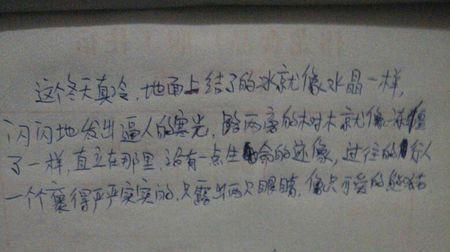 这个冬天真冷，地面上结了的冰就像水晶一样，
闪闪地发出逼人的寒光，路两旁的树木就像冻僵
了一样，直立在那里，没有一点生命的迹像，过往的行人
一个个裹得严严实实的，只露出两只眼睛，像只可爱的熊猫